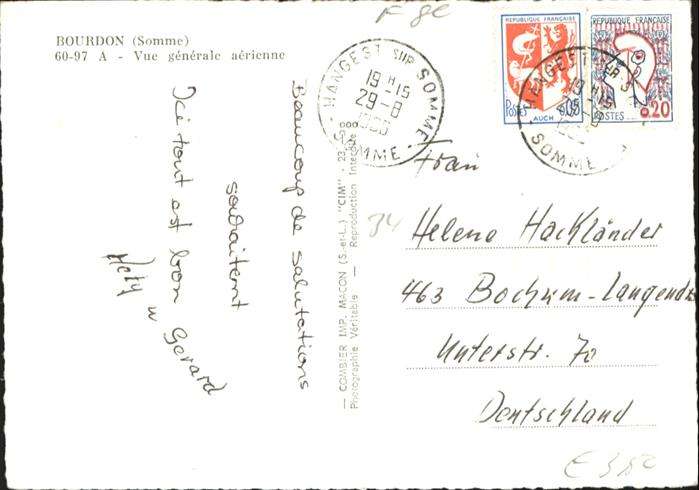 BOURDON (Somme)
60-97 A - Vue générale aérienne
Beaucoup de salutations
souhaitent
Hety u Gerard
Ici tout est bon
— COMBIER IMP. MACON (S.-et-L.) "CIM" -
Photographie Véritable — Reproduction Interdite
HANGEST SUR SOMME
19 H 15
29-8
SOMME
REPUBLIQUE FRANÇAISE
POSTES 0,05
AUCH
REPUBLIQUE FRANÇAISE
POSTES 0,20
HANGEST SUR
19 H 15
SOMME
34
Frau
Helene Hackländer
463 Bochum-Langendr
Unterstr. 70
Deutschland